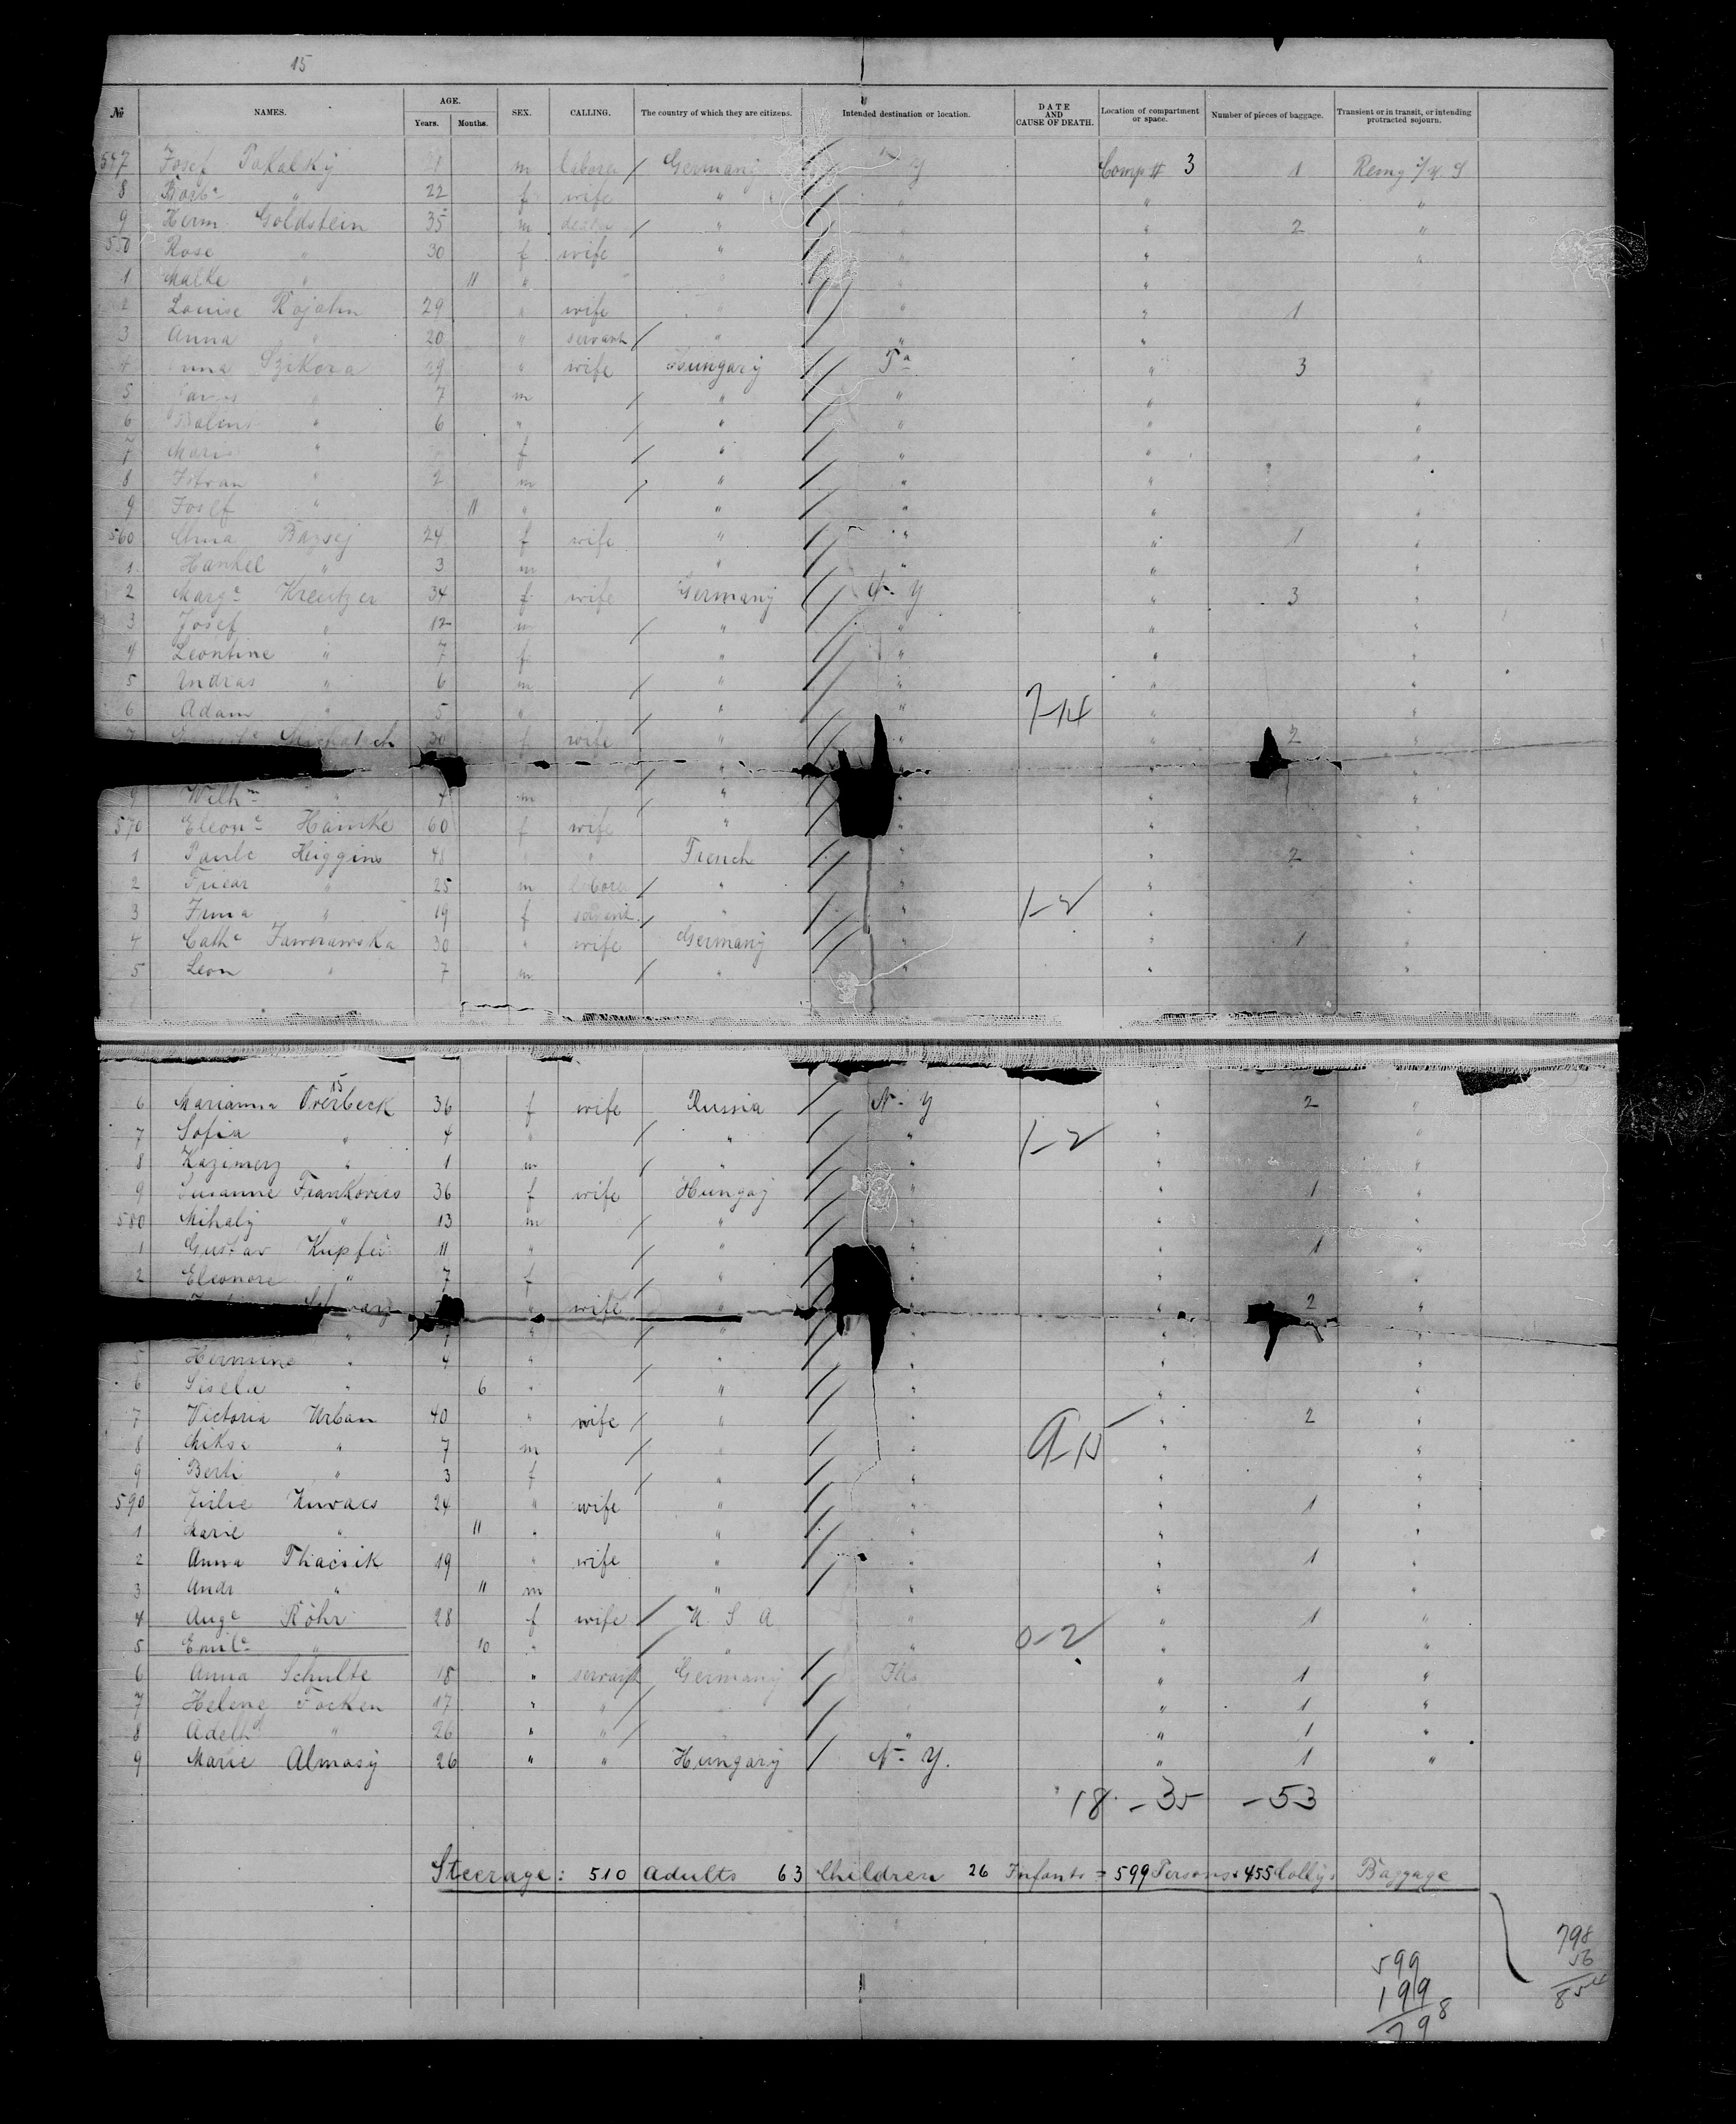 15
№ NAMES. AGE. Years. Months. SEX. CALLING. The country of which they are citizens. Intended destination or location. DATE AND CAUSE OF DEATH. Location of compartment or space. Number of pieces of baggage. Transient or in transit, or intending protracted sojourn.
547 Josef m laborer Germany N. Y Comp II 3 1
8 Barbᵃ " 22 f wife " " " "
9 Herm Goldstein 35 m " " " 2 "
550 Rose " 30 f wife " " " "
1 Malke " 11 " " "
2 Louise Rojahn 29 " wife " " " 1
3 Anna " 20 " servant " " "
4 Szikora 29 " wife Hungary Pᵃ " 3
5 " 7 m " " " "
6 " 6 " " " " "
7 Mari " f " " " "
8 Istvan " 2 m " " "
9 Josef " 11 " " " " "
560 Anna 24 f wife " " " 1 "
1 Hankel " 3 m " " " "
2 Margᵉ Kreutzer 34 f wife Germany N. Y " 3 "
3 Josef " 12 m " " " "
4 Leontine " 7 f " " " "
5 Andras " 6 m " " " "
6 Adam " 5 " " " 7-14 " "
7 30 f wife " " " 2 "
" " " "
9 Wilhᵐ " 4 m " " " "
570 Eleonᵉ Hamke 60 f wife " " " "
1 Paule Heiggins 48 " " French " " 2 "
2 " 25 m laborer " " " "
3 Irma " 19 f servant " " 1-2 "
4 Cathᵉ Jaworawska 30 " wife Germany " " 1 "
5 Leon " 7 m " " " "
15
6 Marianna Overbeck 36 f wife Russia N. Y " 2 "
7 Sofia " 4 " " " 1-2 " "
8 Kazimerz " 1 m " " " "
9 Susanne Frankovics 36 f wife Hungay " " 1 "
580 Mihaly " 13 m " " " "
1 Gustav Kupfer 11 " " " " 1 "
2 Eleonore " 7 f " " " "
" wife " " " 2 "
" 7 " " " "
5 Hermine " 4 " " " " "
6 Gisela " 6 " " " " "
7 Victoria Urban 40 " wife " " " 2 "
8 Miksa " 7 m " " 9-15 " "
9 Berti " 3 f " " " "
590 Julie Kuvacs 24 " wife " " " 1 "
1 Marie " 11 " " " " "
2 Anna Thacsik 19 " wife " " " 1 "
3 Andr " 11 m " " " "
4 Augᵉ Röhr 28 f wife U. S A " " 1 "
5 Emilᵉ " 10 " " " 0-2 " "
6 Anna Schulte 18 " servant Germany Ills " 1 "
7 Helene Focken 17 " " " 1 "
8 Adelhᵈ " 26 " " " " 1 "
9 Marie Almasy 26 " " Hungary N. Y. " 1 "
18 - 35 - 53
Steerage: 510 Adults 63 Children 26 Infants = 599 Persons. 455 Collys Baggage
798
56
854
599
199
798